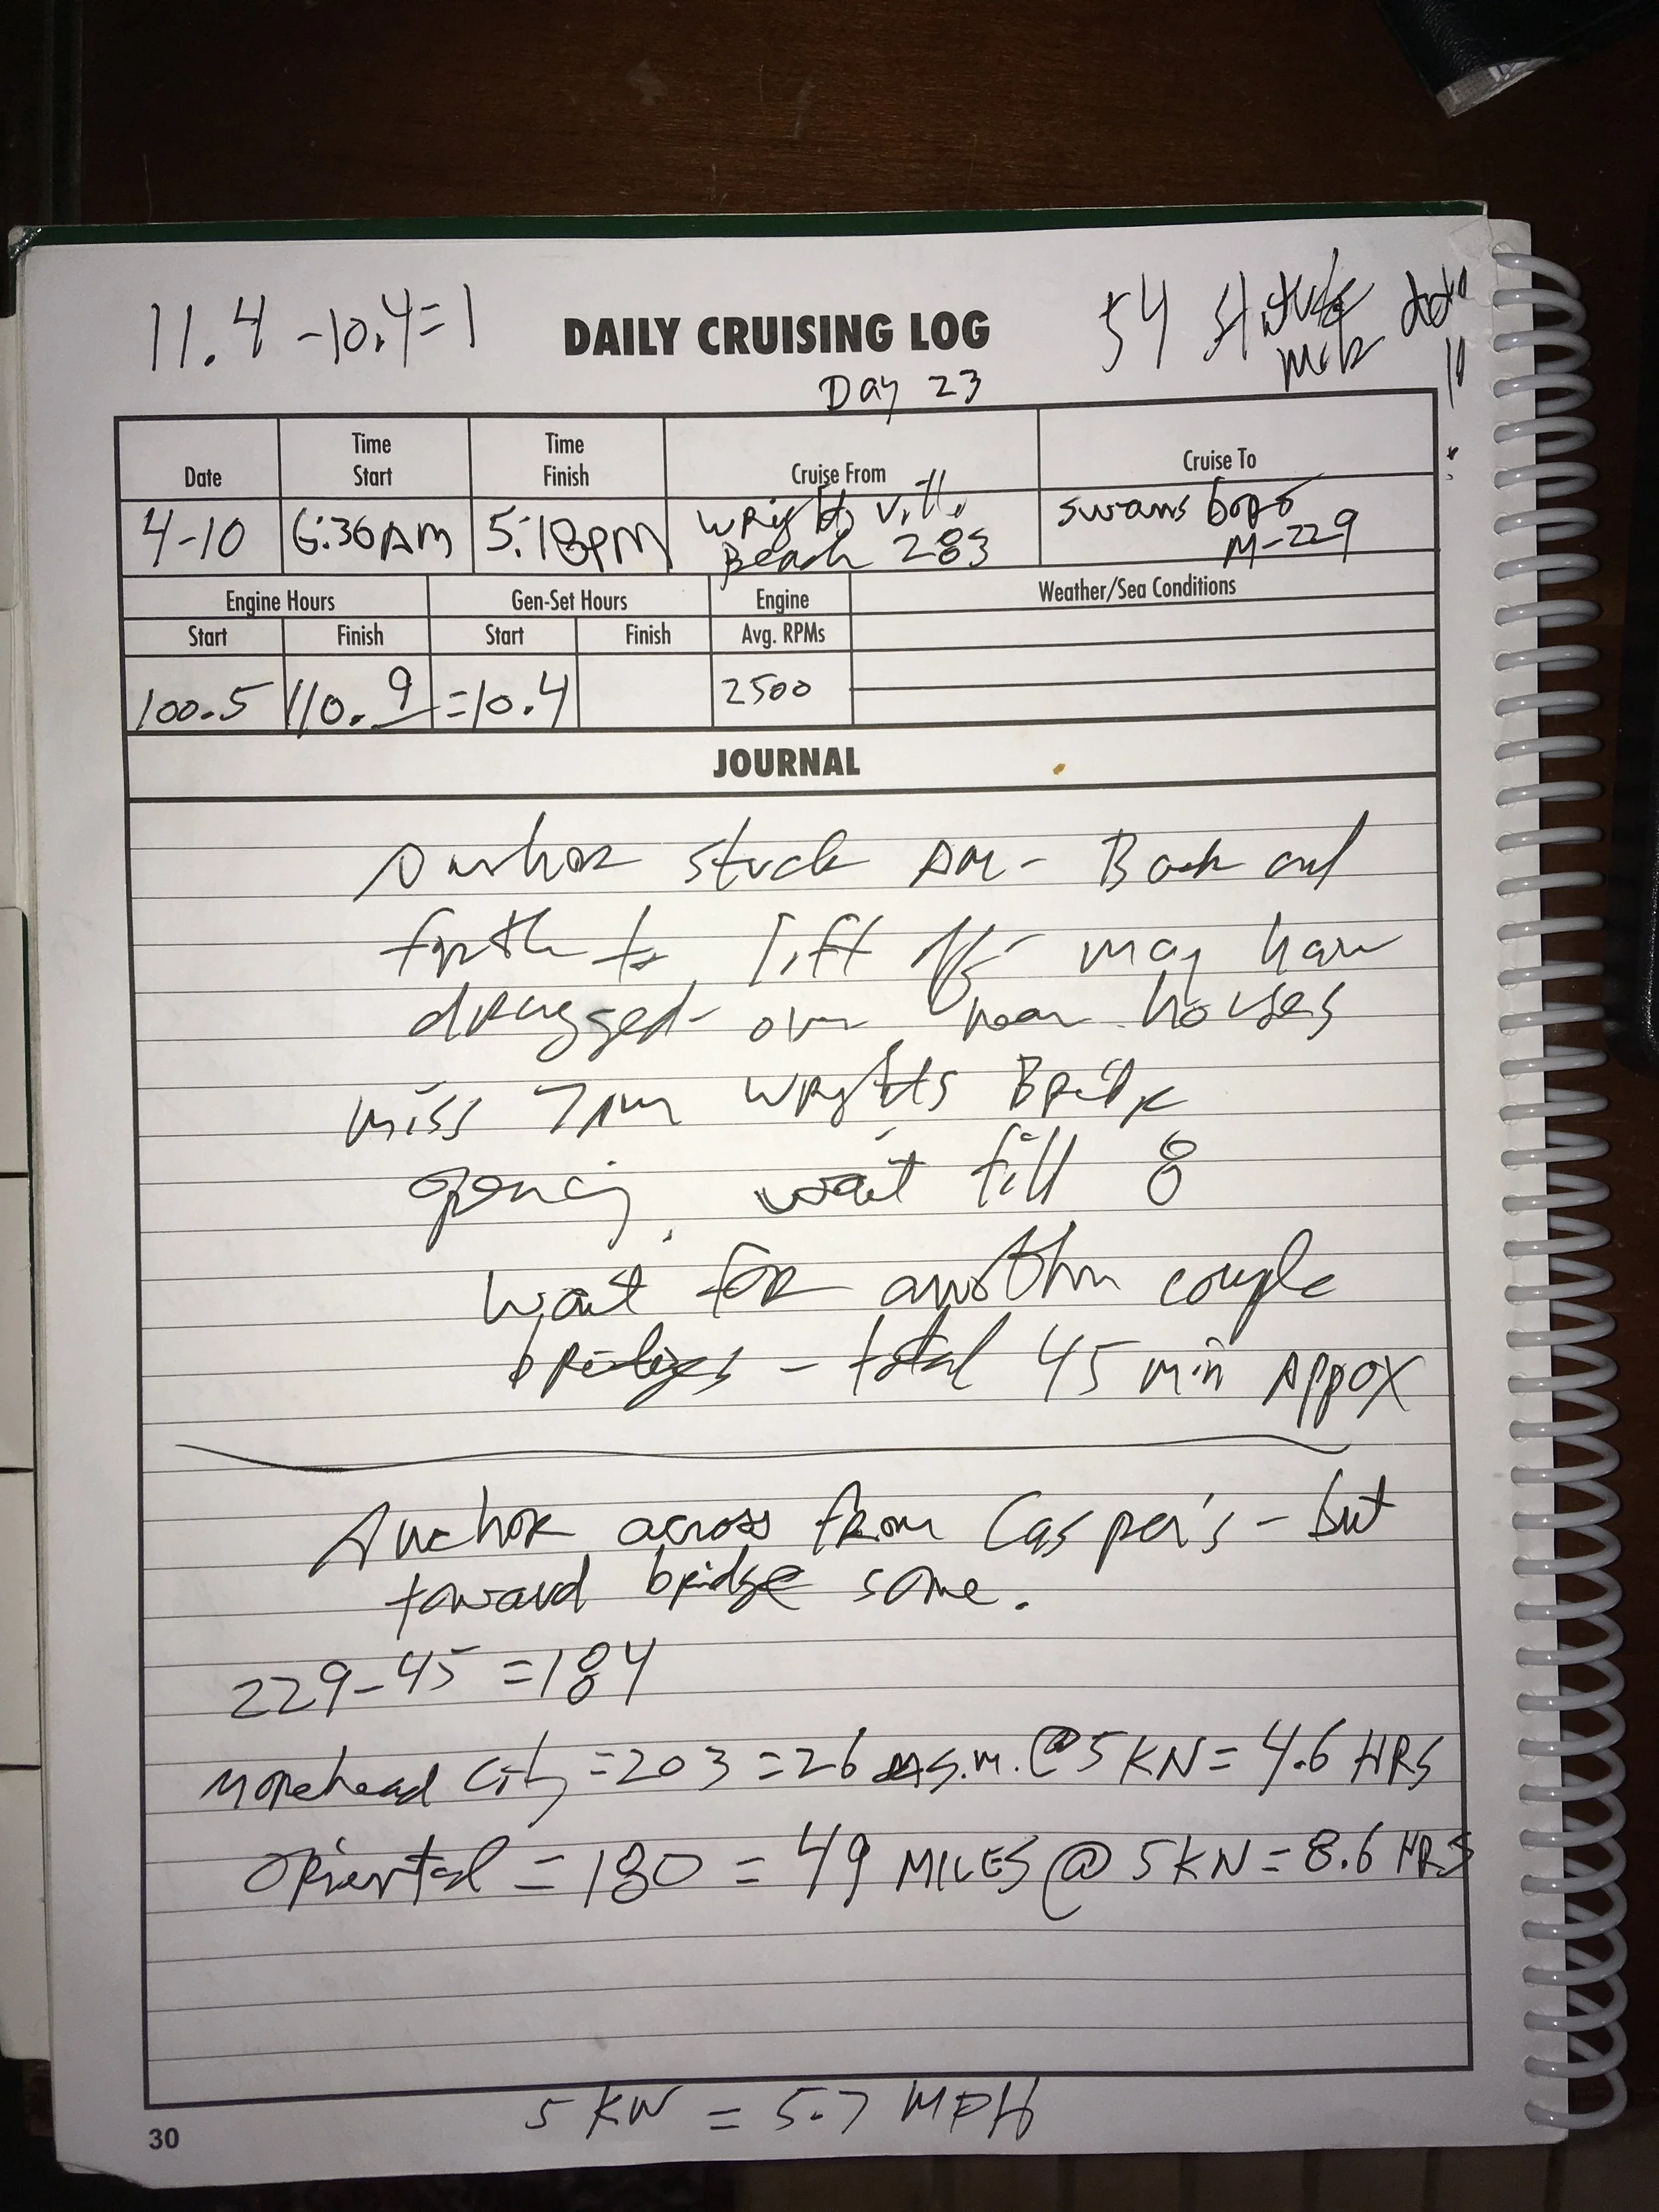 11.4 - 10.4 = 1
54 Statute
DAILY CRUISING LOG
Day 23
Date
Time Start
Time Finish
Cruise From
Cruise To
4-10
6:36 AM
5:18 PM
Wrightsville Beach 283
Swansboro M-229
Engine Hours
Gen-Set Hours
Engine
Weather/Sea Conditions
Start
Finish
Start
Finish
Avg. RPMs
100.5
110.9
=10.4
2500
JOURNAL
Anchor stuck AM - Back and
forth to lift off - may have
dragged - over near houses
miss 7AM Wrights Bridge
opening. wait till 8
Wait for another couple
bridges - total 45 min Appox
Anchor across from Casper's - but
toward bridge some.
229 - 45 = 184
Morehead City = 203 = 26 s.m. @ 5 KN = 4.6 HRS
Oriental = 180 = 49 MILES @ 5 KN = 8.6 HRS
5 KN = 5.7 MPH
30